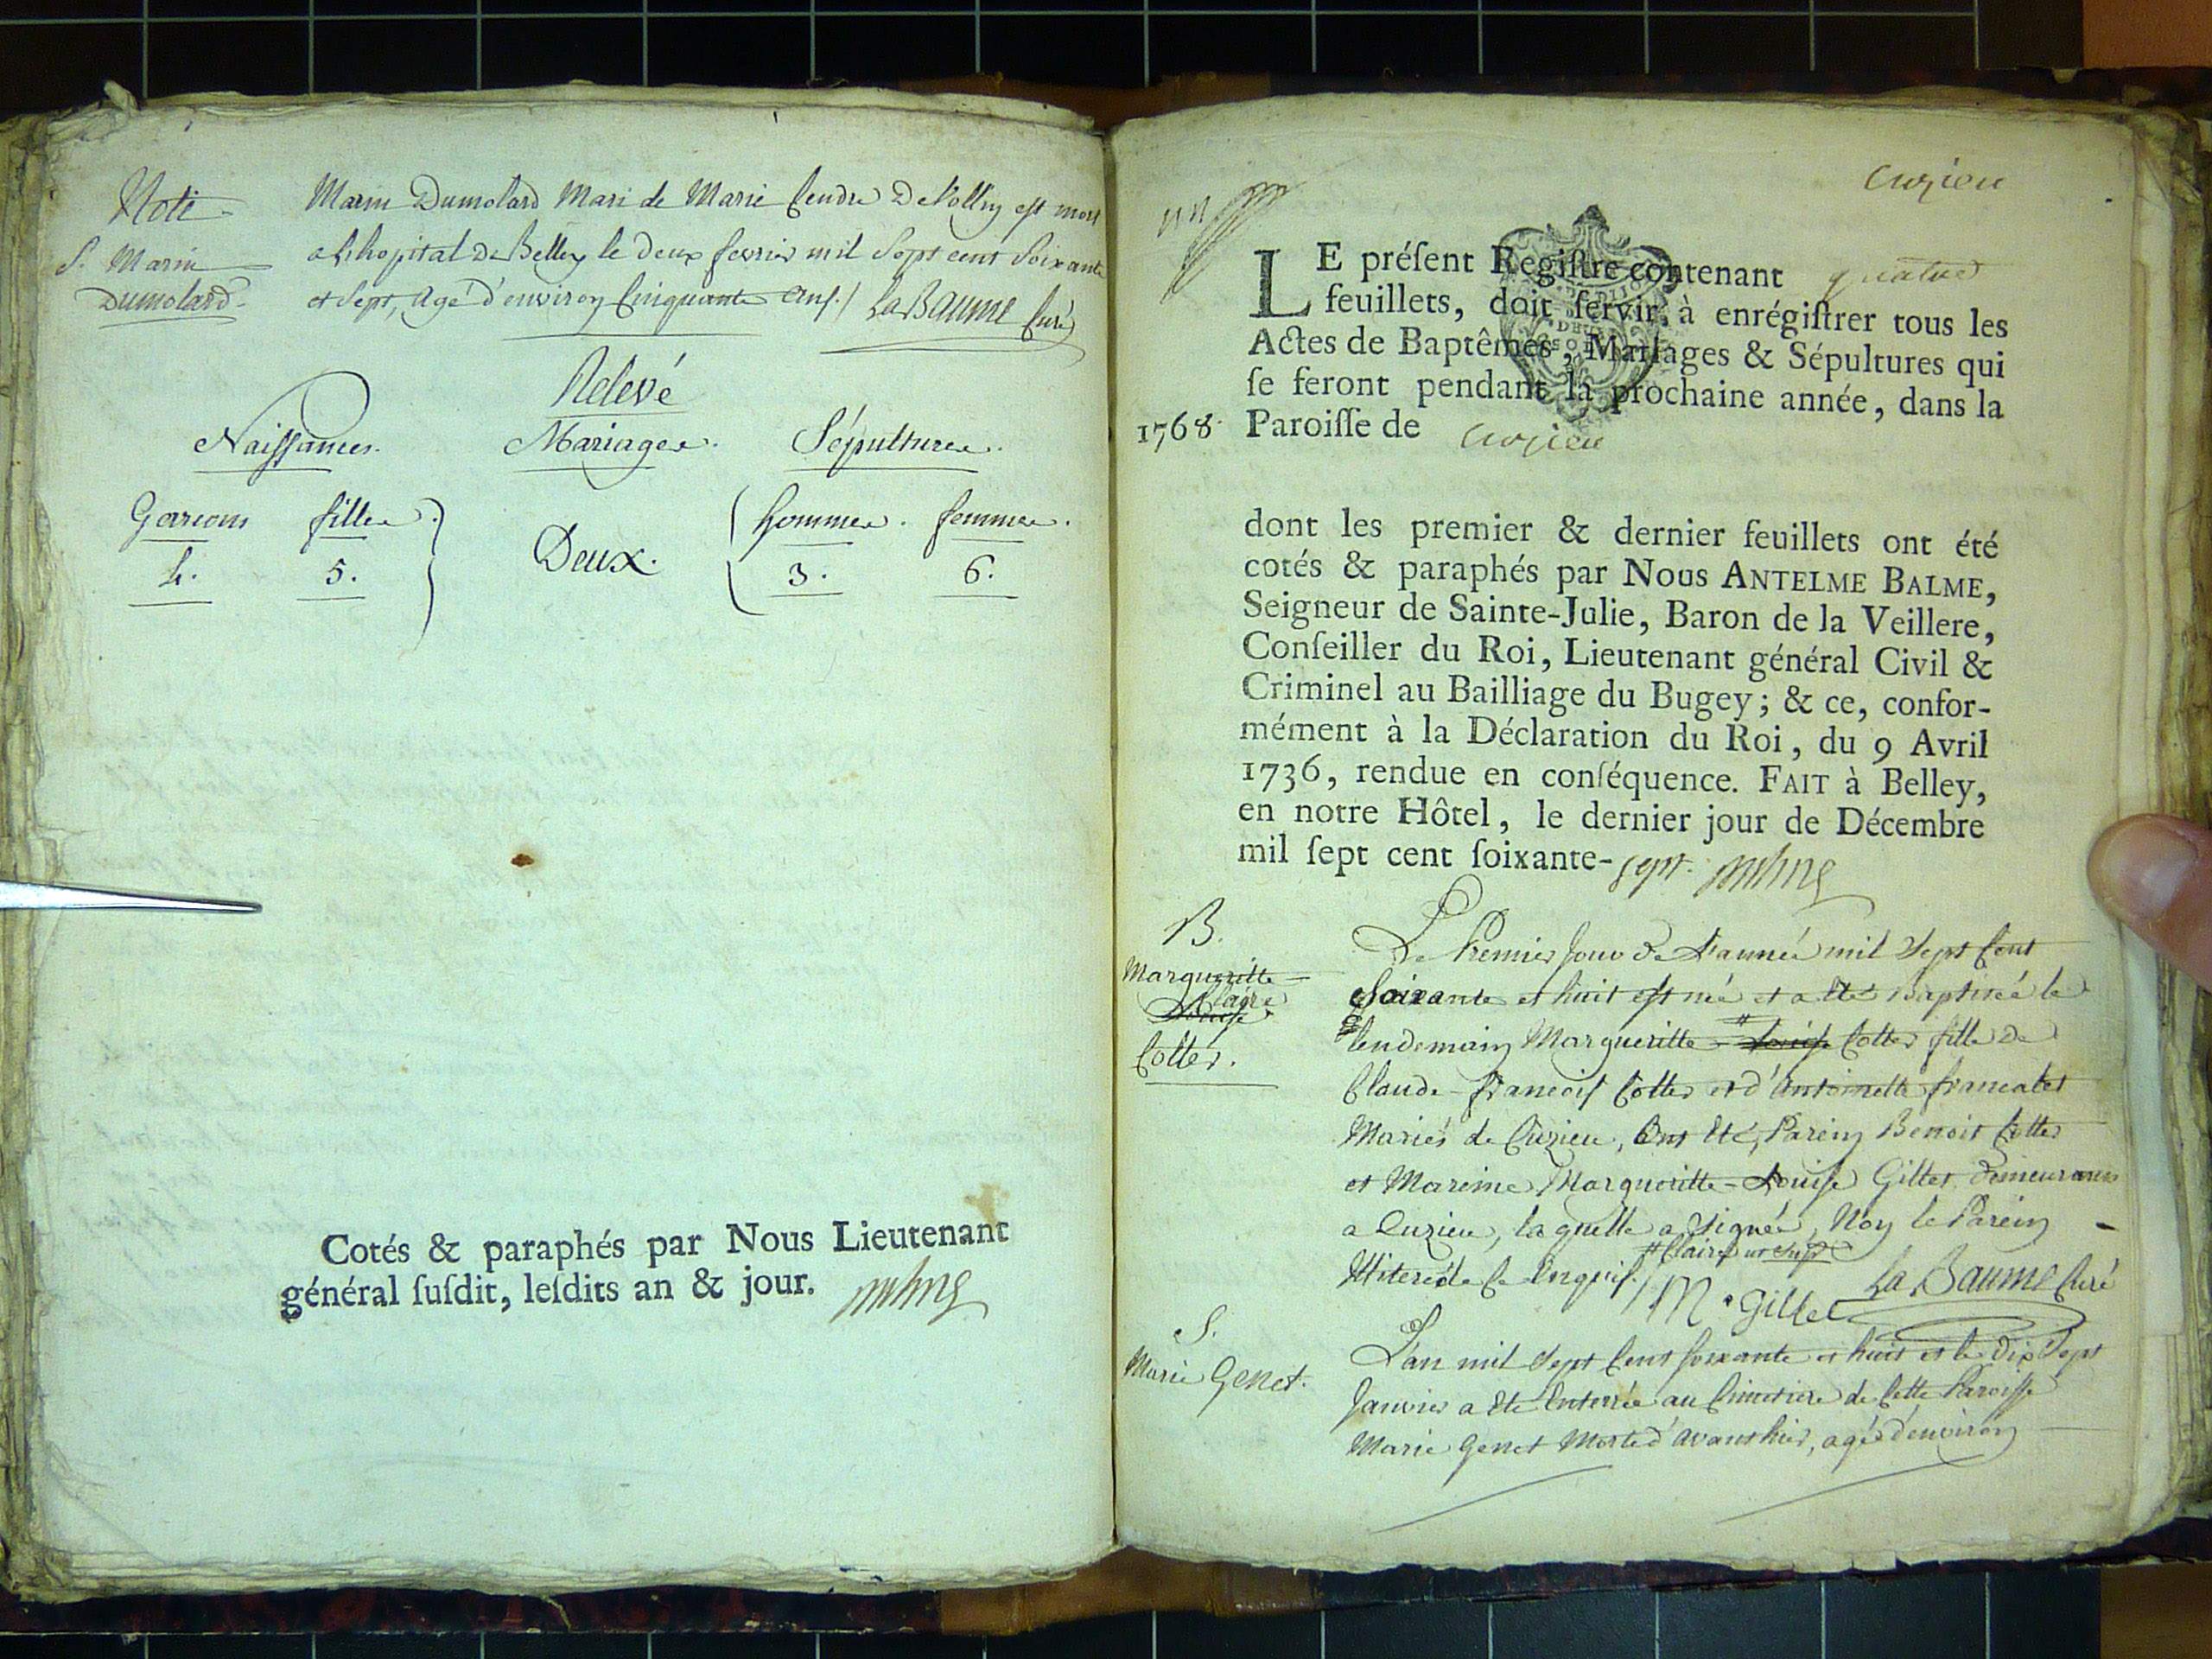 Note
S. Marin
Dumolard
Marin Dumolard Mari de Marie Cendre De est mort
a L'hopital De Belley le Deux fevrier mil Sept cent Soixante
et Sept, Agé d'environ Cinquante ans./ La Baume Curé
Relevé
Naissances. Mariages. Sépultures.
Garcons filles. Deux. hommes. femmes.
4. 5. 3. 6.
Cotés & paraphés par Nous Lieutenant
général suſdit, leſdits an & jour.
Cuzieu
LE préſent Regiſtre contenant quatre
feuillets, doit ſervir, à enrégiſtrer tous les
Actes de Baptêmes, Mariages & Sépultures qui
ſe feront pendant la prochaine année, dans la
1768 Paroiſſe de Cuzieu
dont les premier & dernier feuillets ont été
cotés & paraphés par Nous ANTELME BALME,
Seigneur de Sainte-Julie, Baron de la Veillere,
Conſeiller du Roi, Lieutenant général Civil &
Criminel au Bailliage du Bugey; & ce, confor-
mément à la Déclaration du Roi, du 9 Avril
1736, rendue en conſéquence. FAIT à Belley,
en notre Hôtel, le dernier jour de Décembre
mil ſept cent ſoixante-sept.
B.
Margueritte
Claire
Louise
Cottet.
Le Premier Jour De L'année mil Sept Cent
Soixante et huit est née et a Eté Baptisée le
lendemain Margueritte # Louise Cottet fille de
Claude-francois Cottet et d'Antoinette francalet
Mariés de Cuzieu, Ont Eté, Parein Benoit Cottet
et Mareine Margueritte-Louise Gillet, demeurans
a Cuzieu, laquelle a Signée, Non le Parein
Illiteré de Ce Enquis./ # Claire ut supᵃ
M. Gillet La Baume Curé
S.
Marie Genet.
L'an mil Sept Cent soixante et huit et le Dix Sept
Janvier a Eté Enterrée au Cimetiere de Cette Paroisse
Marie Genet Morte d'avant hier, agée d'environ